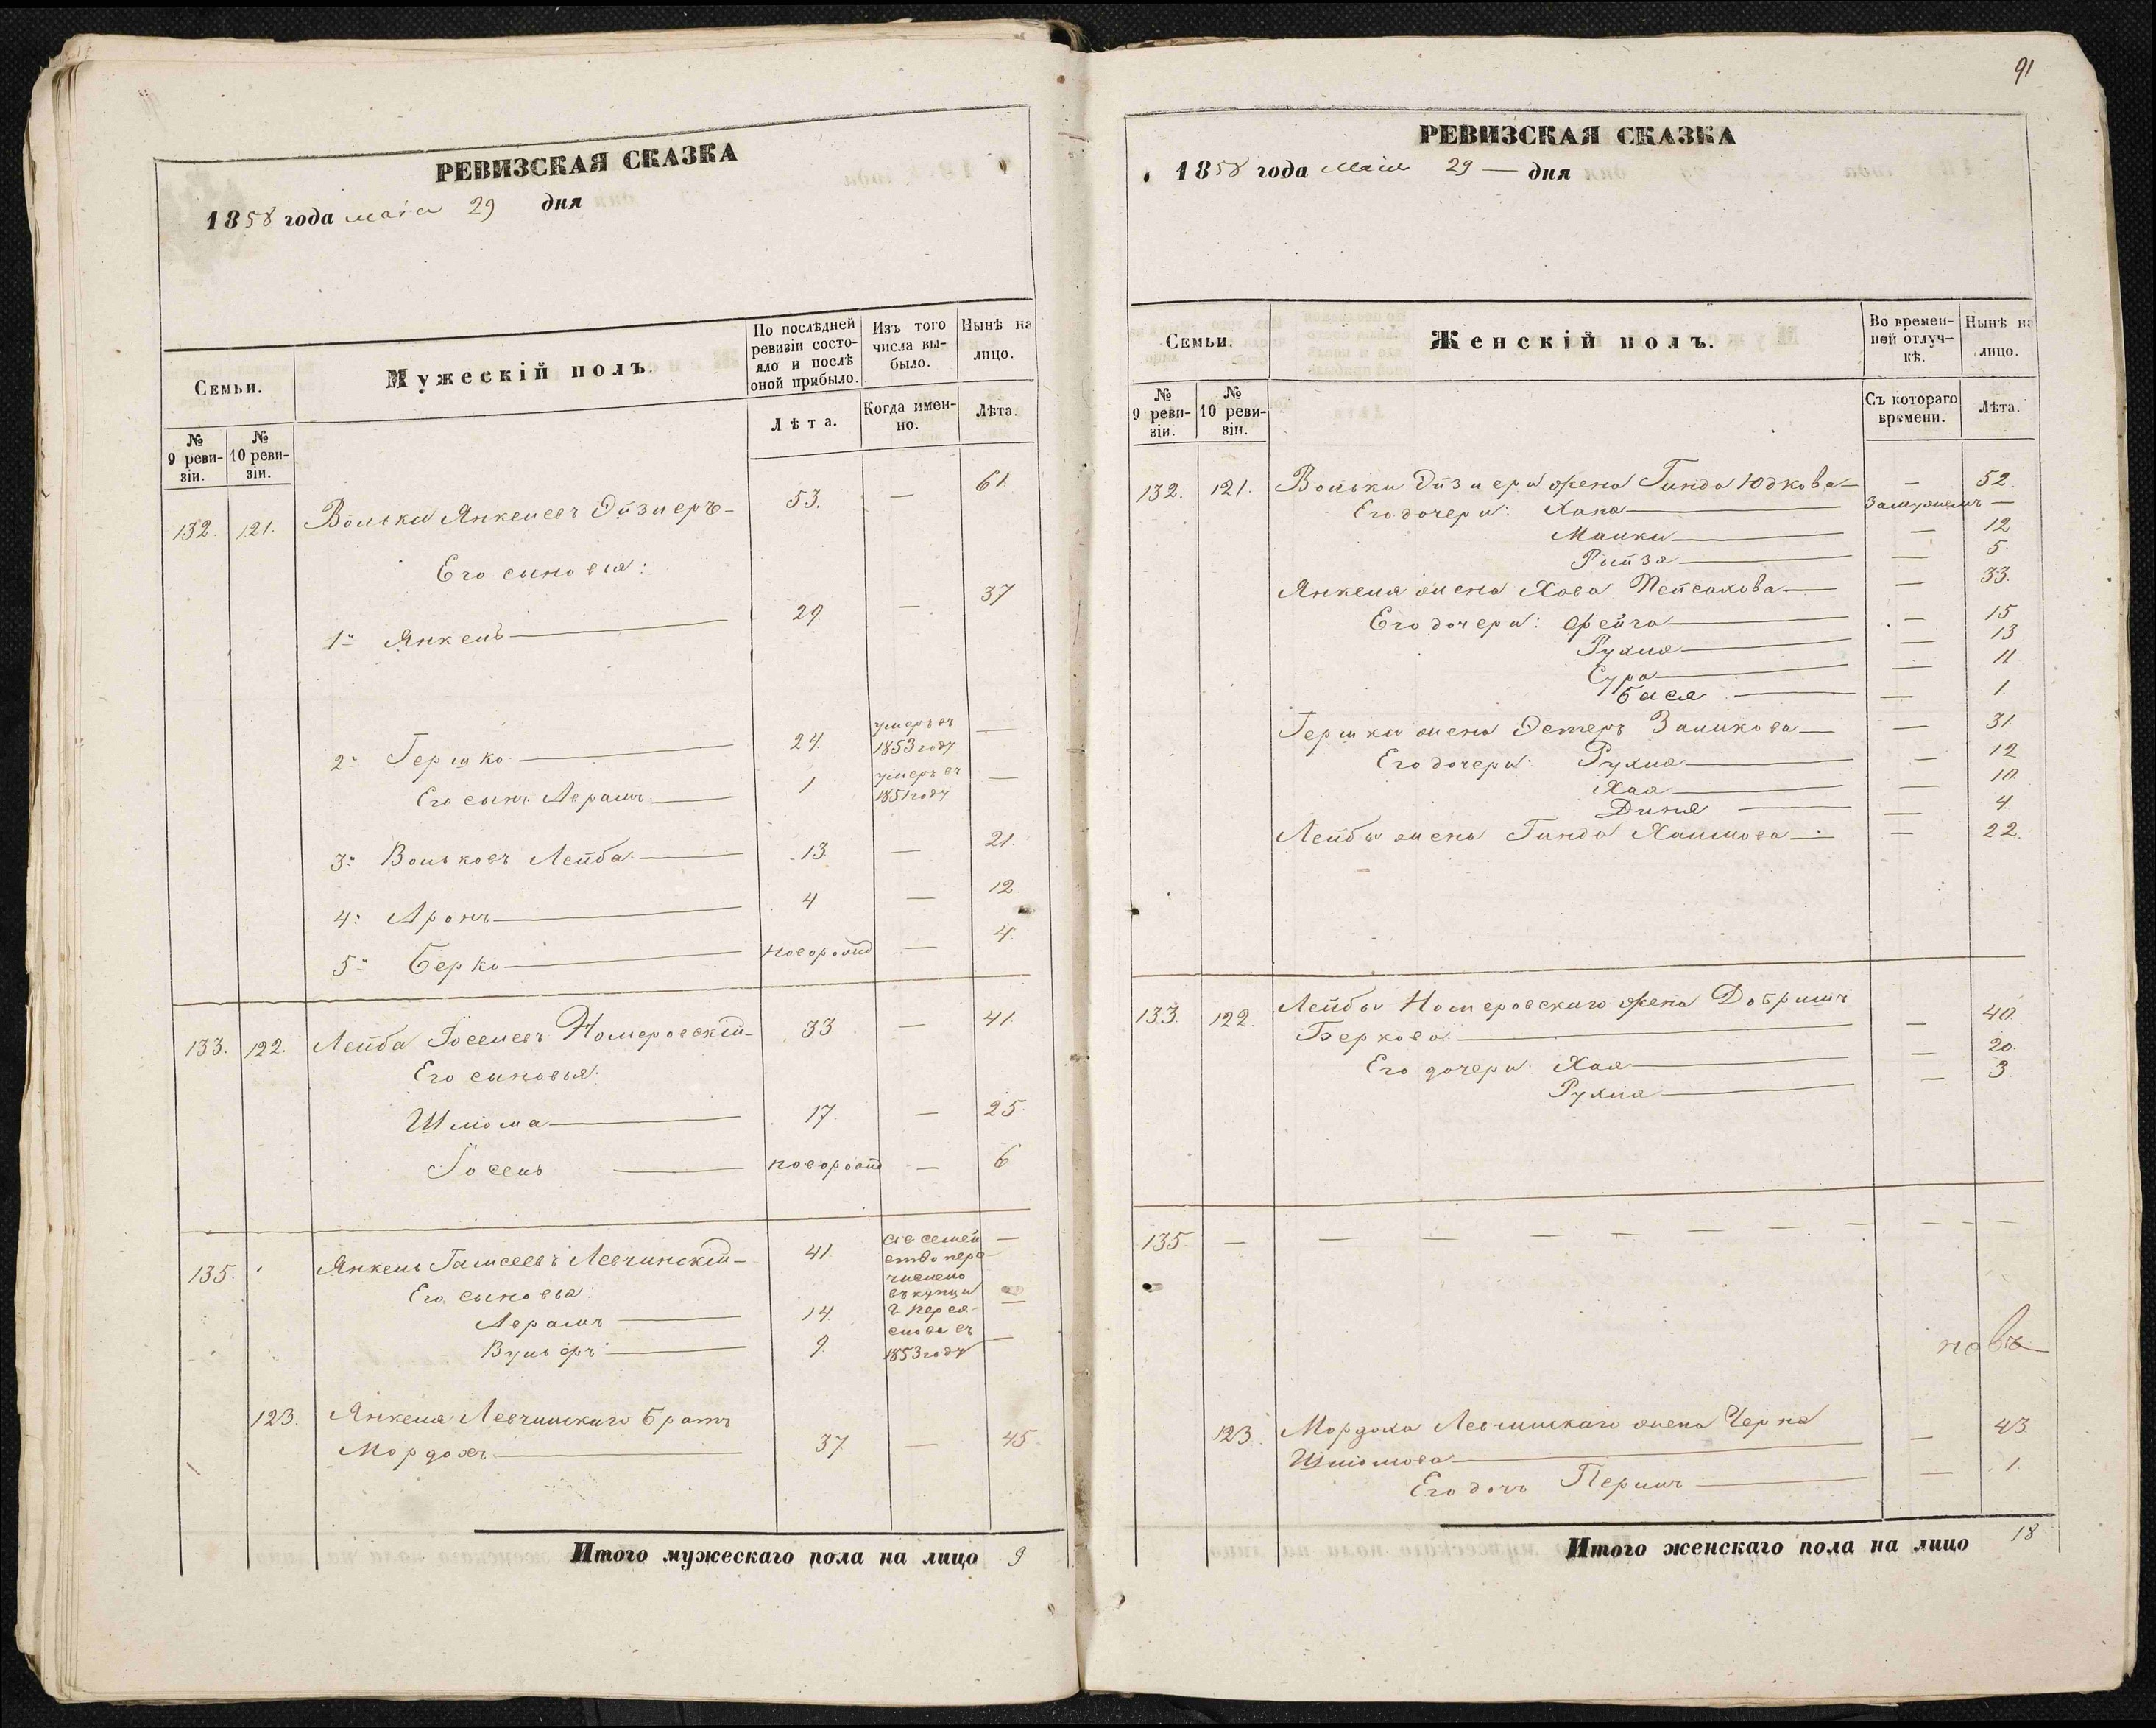 РЕВИЗСКАЯ СКАЗКА
1858 года маія 29 дня
Семьи.
Мужескій полъ.
По послѣдней ревизіи состояло и послѣ оной прибыло.
Изъ того числа выбыло.
Нынѣ на лицо.
№ 9 ревизіи.
№ 10 ревизіи.
Лѣта.
Когда именно.
Лѣта.
132. 121. Волько Янкелевъ Эйзнеръ 53. — 61
Его сыновья:
1. Янкель 29 — 37
2. Гершко 24. умеръ въ 1853 году —
Его сынъ Аврамъ 1. умеръ въ 1851 году —
3. Вольковъ Лейба 13. — 21.
4. Аронъ 4 — 12.
5. Берко новорожд — 4
133. 122. Лейба Іоселевъ Номеровскій 33 — 41
Его сыновья:
Шліома 17. — 25.
Іосель новорожд — 6
135. Янкель Левчинскій 41 сіе семейство перечислено въ купцы г. въ 1853 году —
Его сыновья:
Аврамъ 14. —
Вульфъ 9. —
123. Янкеля Левчинскаго братъ
Мордохъ 37. — 45.
Итого мужескаго пола на лицо 9
91
РЕВИЗСКАЯ СКАЗКА
1858 года Маія 29 — дня
Семьи.
Женскій полъ.
Во временной отлучкѣ.
Нынѣ на лицо.
№ 9 ревизіи.
№ 10 ревизіи.
Съ котораго времени.
Лѣта.
132. 121. Вольки Эйзнера жена Гинда Юдкова — 52.
Его дочери: Хана Замужемъ —
Малка — 12
Рейза — 5.
Янкеля жена Хова Пейсахова — 33.
Его дочери: Фейга — 15
Рухля — 13
Сура — 11
Бася — 1.
Гершки жена Эстеръ Заликова — 31.
Его дочери: Рухля — 12
Хая — 10
Диня — 4.
Лейбы жена Гинда Хаимова — 22.
133. 122. Лейбы Номеровскаго жена Добришъ
Беркова — 40
Его дочери: Хая — 20.
Рухля — 3.
135 — — — — — — — — — —
123. Мордоха Левчинскаго жена Черна
Шліомова — 43
Его дочь Перишъ — 1
Итого женскаго пола на лицо 18